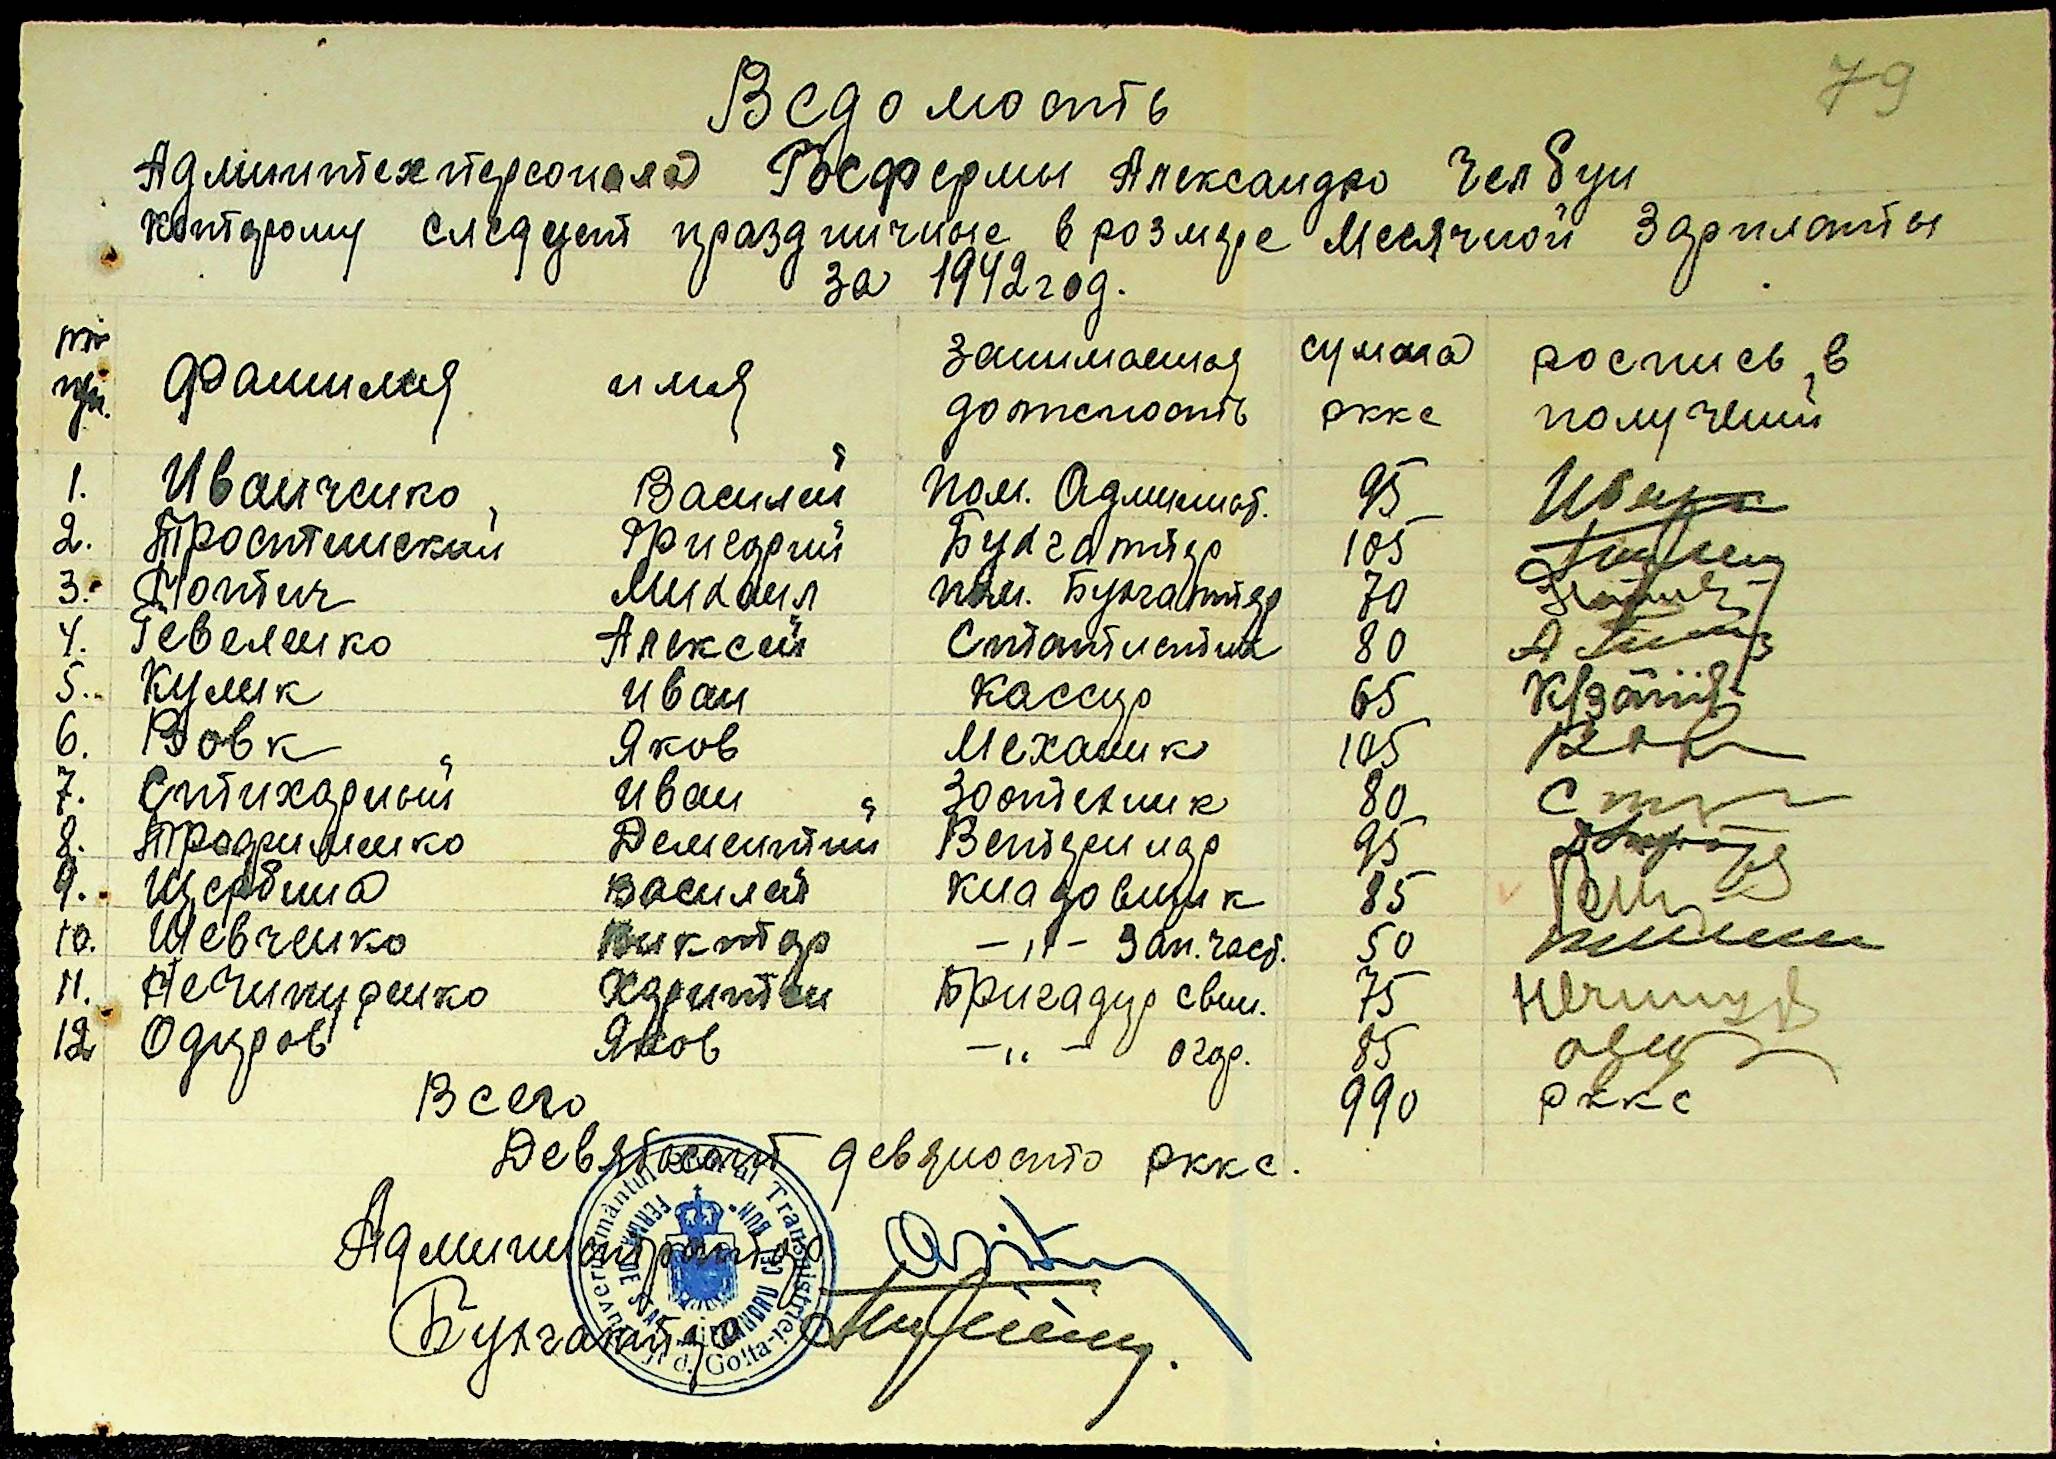 79
Ведомость
Админтехперсонала Госфермы Александро Челбун
которому следует праздничные в розмере месячной зарплаты
за 1942 год.
№№ пп. фамилия имя занимаемая должность сумма рккс роспись в получений
1. Иванченко Василий Пом. Админист. 95
2. Тростинский Григорий Бухгалтер 105
3. Гонтич Михаил пом. Бухгалтер 70
4. Гевеленко Алексей Статистик 80
5. Кулик Иван Кассир 65
6. Вовк Яков Механик 105 Вовк
7. Стихарный Иван Зоотехник 80
8. Трофименко Дементий Ветеринар 95
9. Щербина Василий Кладовщик 85
10. Шевченко Виктор —„— Зап. част. 50
11. Нечипуренко Харитон Бригадир свин. 75 Нечипур
12 Одиров Яков —„— огор. 85
Всего 990 рккс
Девятьсот девяносто рккс.
Администратор
Бухгалтер
Guvernământul Transnistriei - Jud. Golta
FERMA DE STAT ALEXANDRU CEL BUN